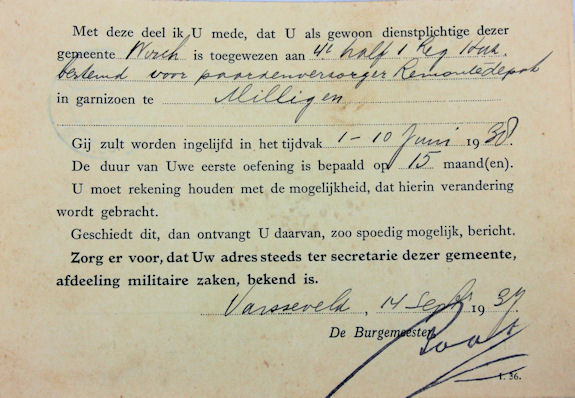 Met deze deel ik U mede, dat U als gewoon dienstplichtige dezer
gemeente Wisch is toegewezen aan 4e half 1 Reg Huz.
bestemd voor paardenverzorger Remontedepot
in garnizoen te Milligen
Gij zult worden ingelijfd in het tijdvak 1-10 Juni 1938.
De duur van Uwe eerste oefening is bepaald op 15 maand(en).
U moet rekening houden met de mogelijkheid, dat hierin verandering
wordt gebracht.
Geschiedt dit, dan ontvangt U daarvan, zoo spoedig mogelijk, bericht.
Zorg er voor, dat Uw adres steeds ter secretarie dezer gemeente,
afdeeling militaire zaken, bekend is.
Varsseveld, 14 Sept. 1937
De Burgemeester,
1. 36.